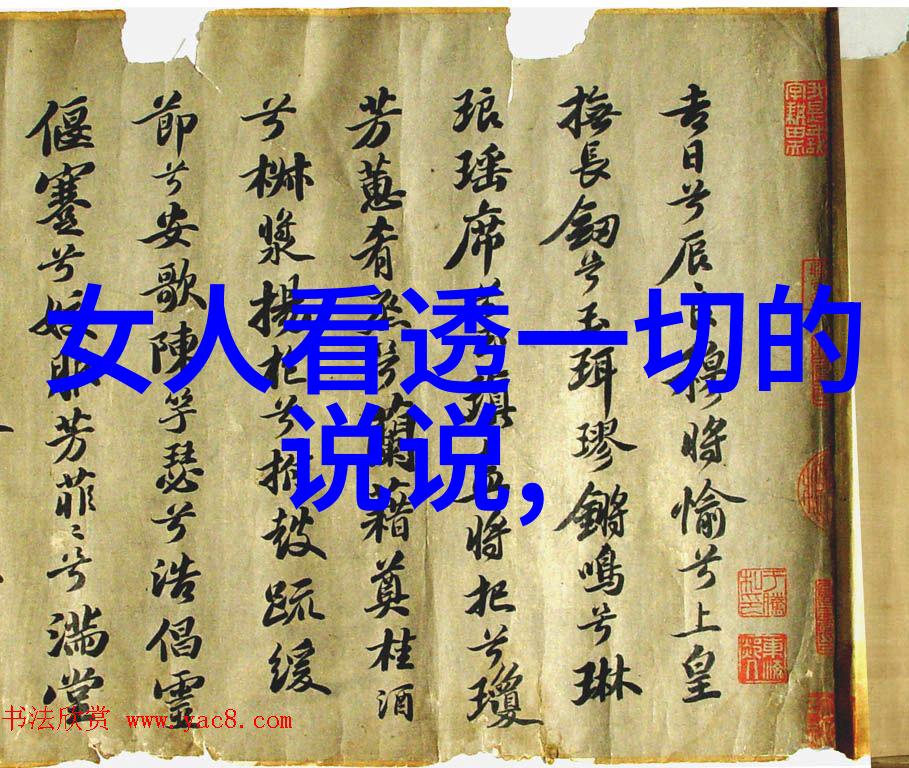 吉日兮辰良穆將愉兮上皇
撫長劒兮玉珥璆鏘鳴兮琳
琅瑶席瑱將把兮瓊
芳蕙肴烝兮蘭藉奠桂酒
兮椒漿揚枹兮拊鼓疏緩
節兮安歌陳竽瑟兮浩倡靈
偃蹇兮姣服芳菲〻兮滿堂
女人看透一切的
说说,
书法欣赏 www.yac8.com